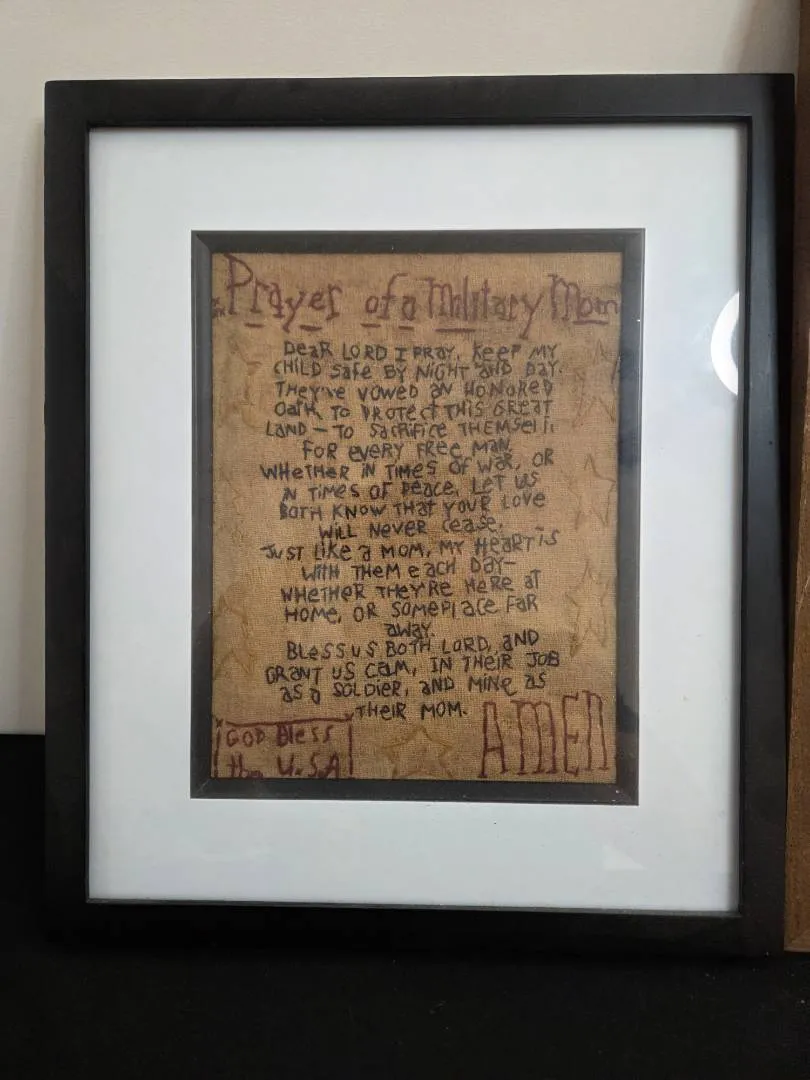 Prayer of a Military Mom
Dear Lord I pray, keep my
child safe by night and day.
They've vowed an honored
oath to protect this great
land — to sacrifice themself
for every free man.
Whether in times of war, or
in times of peace, let us
both know that your love
will never cease.
Just like a mom, my heart is
with them each day—
whether they're here at
home, or someplace far
away.
Bless us both Lord, and
grant us calm, in their job
as a soldier, and mine as
their mom.
AMEN
God Bless
the U.S.A